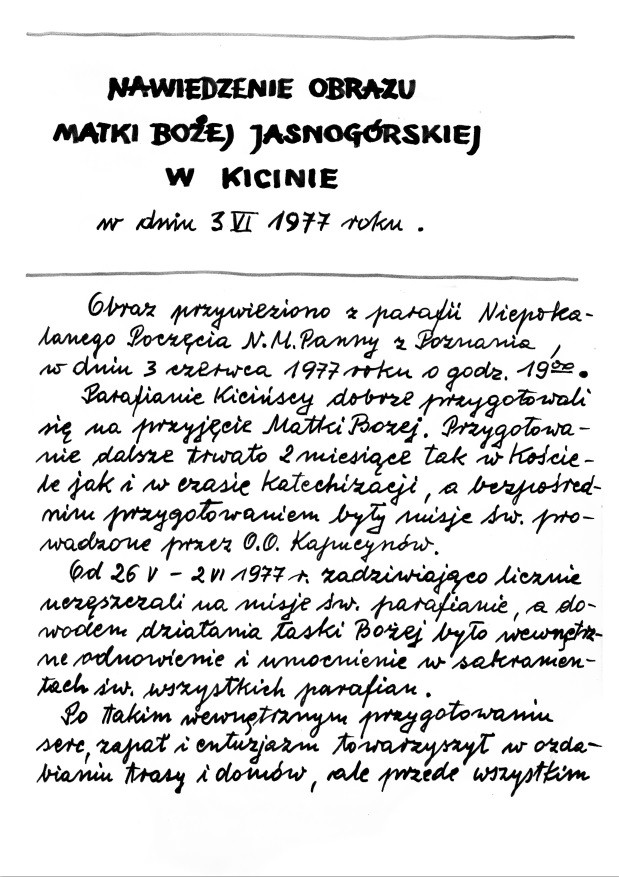 NAWIEDZENIE OBRAZU
MATKI BOŻEJ JASNOGÓRSKIEJ
W KICINIE
w dniu 3 VI 1977 roku .
Obraz przywieziono z parafii Niepoka-
lanego Poczęcia N.M.Panny z Poznania ,
w dniu 3 czerwca 1977 roku o godz. 19⁰⁰.
Parafianie Kicińscy dobrze przygotowali
się na przyjęcie Matki Bożej. Przygotowa-
nie dalsze trwało 2 miesiące tak w Koście-
le jak i w czasie katechizacji , a bezpośred-
nim przygotowaniem były misje św. pro-
wadzone przez O.O. Kapucynów.
Od 26 V – 2 VI 1977 r. zadziwiająco licznie
uczęszczali na misje św. parafianie, a do-
wodem działania łaski Bożej było wewnętrz-
ne odnowienie i umocnienie w sakramen-
tach św. wszystkich parafian .
Po takim wewnętrznym przygotowaniu
serc, zapał i entuzjazm towarzyszył w ozda-
bianiu trasy i domów , ale przede wszystkim